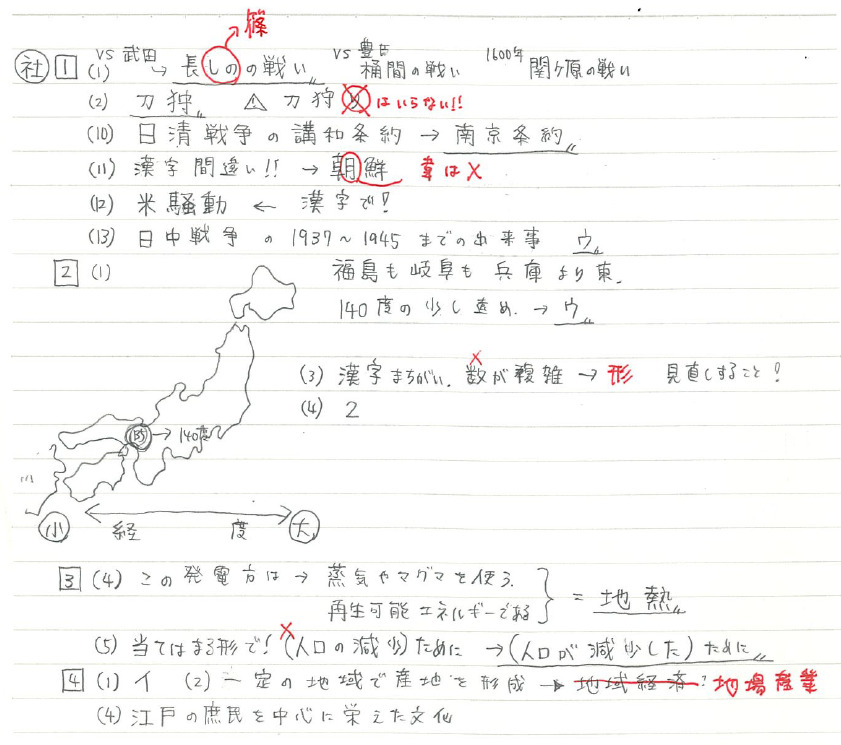 篠
社 1 (1) vs 武田 → 長しのの戦い vs 豊臣 桶間の戦い 1600年 関ヶ原の戦い
(2) 刀狩 ⚠ 刀狩り はいらない!!
(10) 日清戦争の講和条約 → 南京条約
(11) 漢字間違い!! → 朝鮮 韋は×
(12) 米騒動 ← 漢字で!
(13) 日中戦争の1937~1945までの出来事 ウ
2 (1) 福島も岐阜も兵庫より東.
140度の少し
→ ウ
(3) 漢字まちがい. 数が複雑 → 形 見直しすること!
(4) 2
→ 140度
小 経度 大
3 (4) この発電方は → 蒸気やマグマを使う.
再生可能エネルギーである = 地熱
(5) 当てはまる形で! (人口の減少)ために → (人口が減少した)ために
4 (1) イ (2) 一定の地域で産地を形成 → 地域経済? 地場産業
(4) 江戸の庶民を中心に栄えた文化